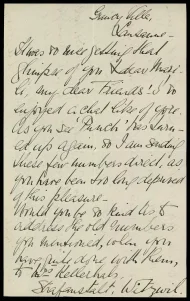 Lausanne —
It was so nice getting that
glimpse of you dear
my dear friends! & so
enjoyed a chat like of yore.
As you see "Punch" has turn-
ed up again, so I am sending
these few numbers direct, as
you have been so long deprived
of this pleasure —
Would you be so kind as to
address the old numbers
you mentioned, when you
have quite done with them,
to Mrs Kellerhals.
Strafanstalt. Witzwil.